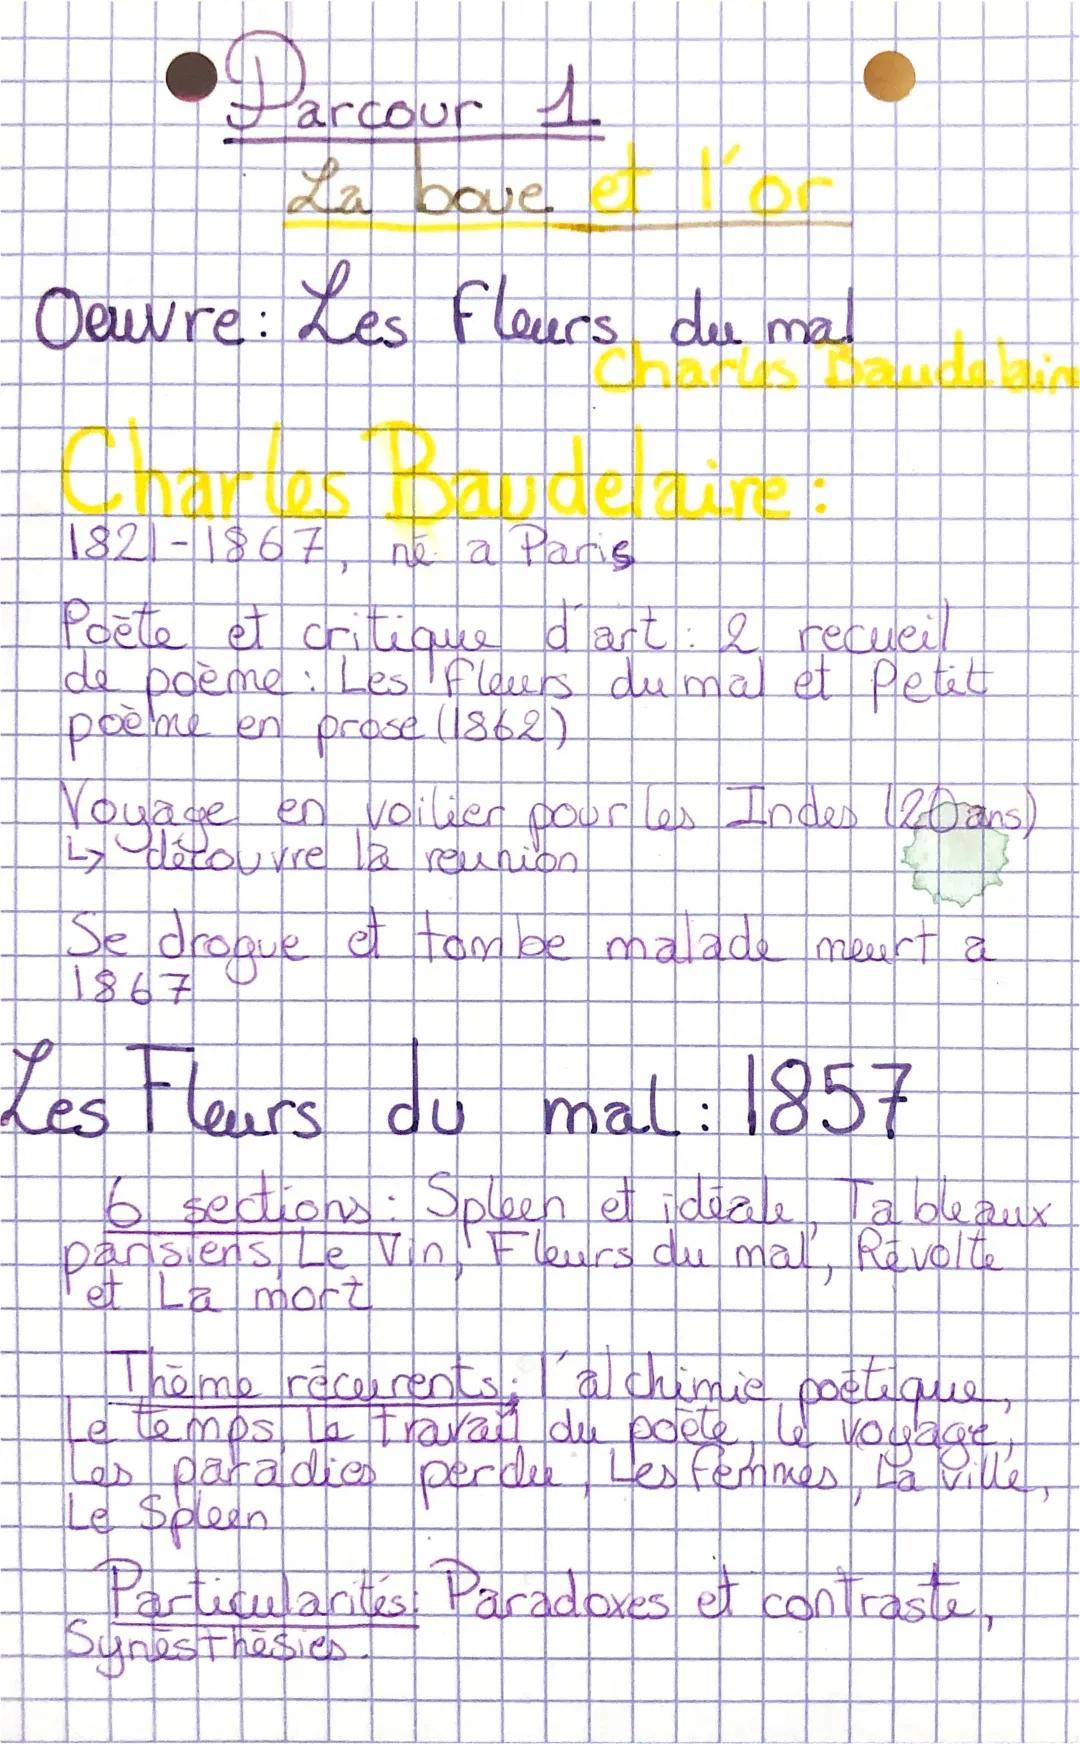 Parcour 1
La boue et l'or
Oeuvre: Les fleurs du mal
Charles Baudelair
Charles Baudelaire:
1821-1867, né a Paris
Poète et critique d'art : 2 recueil
de poème : Les fleurs du mal et Petit
poème en prose (1862)
Voyage en voilier pour les Indes (20 ans)
↳ découvre la reunion
Se drogue et tombe malade meurt a
1867
Les Fleurs du mal : 1857
6 sections : Spleen et idéale, Tableaux
parisiens, Le Vin, Fleurs du mal, Révolte
et La mort
Thème récurents : l'alchimie poétique,
Le temps, le travail du poète, le voyage,
Les paradies perdu, Les femmes, La ville,
Le Spleen
Particularités : Paradoxes et contraste,
Synésthésies.